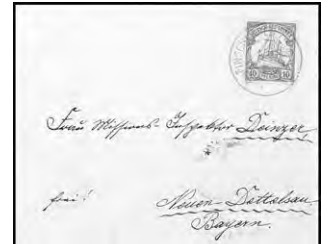 10 10
Frau Missions-Inspektor Deinzer
frei!
Neuen-Dettelsau
Bayern.